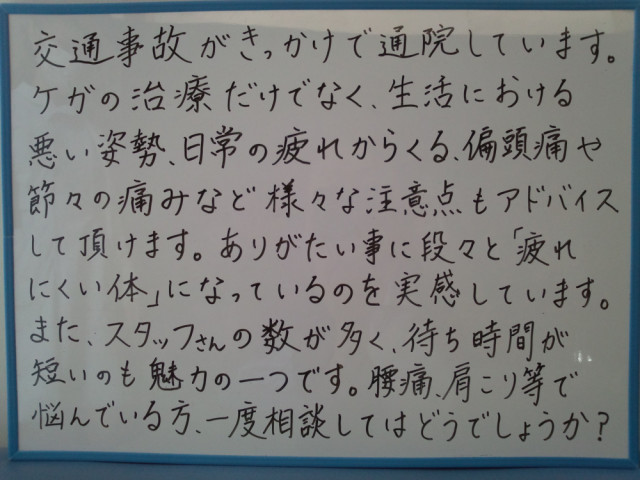 交通事故がきっかけで通院しています。
ケガの治療だけでなく、生活における
悪い姿勢、日常の疲れからくる、偏頭痛や
節々の痛みなど様々な注意点もアドバイス
して頂けます。ありがたい事に段々と「疲れ
にくい体」になっているのを実感しています。
また、スタッフさんの数が多く、待ち時間が
短いのも魅力の一つです。腰痛、肩こり等で
悩んでいる方、一度相談してはどうでしょうか?